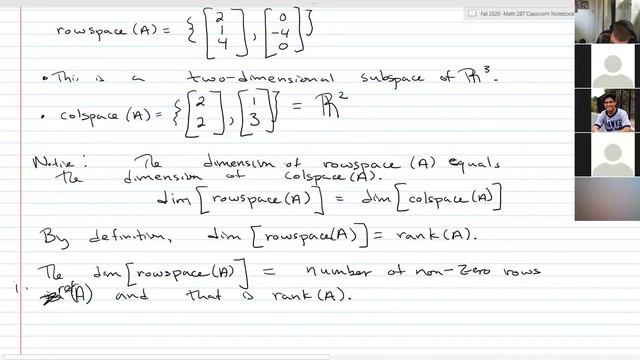 rowspace (A) = { [2 1 4], [0 -4 0] }
Fall 2020- Math 287 Classroom Notebook
• This is a two-dimensional subspace of ℝ³.
• colspace (A) = { [2 2], [1 3] } = ℝ²
Notice: The dimension of rowspace (A) equals
the dimension of colspace (A).
dim [rowspace (A)] = dim [colspace (A)]
By definition, dim [rowspace(A)] = rank (A).
The dim [rowspace (A)] = number of non-zero rows
ref(A) and that is rank (A).